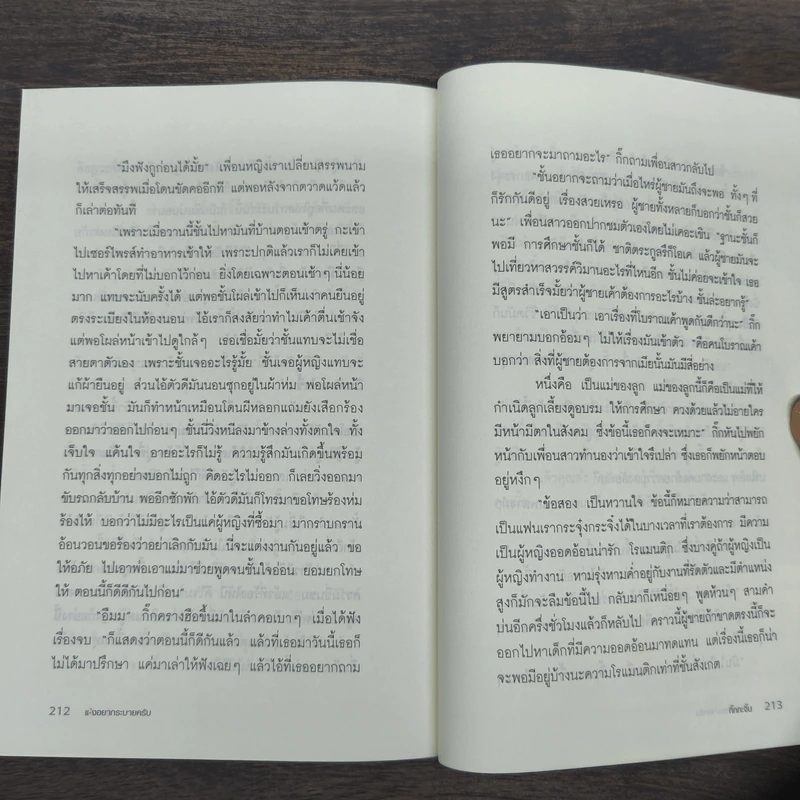 "มึงฟังกูก่อนได้มั้ย" เพื่อนหญิงเราเปลี่ยนสรรพนาม
ให้เสร็จสรรพเมื่อโดนขัดคออีกที แต่พอหลังจากตวาดแว้ดแล้ว
ก็เล่าต่อทันที
"เพราะเมื่อวานนี้ชั้นไปหามันที่บ้านตอนเช้าตรู่ กะเข้า
ไปเซอร์ไพรส์ทำอาหารเช้าให้ เพราะปกติแล้วเราก็ไม่เคยเข้า
ไปหาเค้าโดยที่ไม่บอกไว้ก่อน ยิ่งโดยเฉพาะตอนเช้าๆ นี่น้อย
มาก แทบจะนับครั้งได้ แต่พอชั้นโผล่เข้าไปก็เห็นเงาคนยืนอยู่
ตรงระเบียงในห้องนอน ไอ้เราก็สงสัยว่าทำไมเค้าตื่นเช้าจัง
แต่พอโผล่หน้าเข้าไปดูใกล้ๆ เธอเชื่อมั้ยว่าชั้นแทบจะไม่เชื่อ
สายตาตัวเอง เพราะชั้นเจออะไรรู้มั้ย ชั้นเจอผู้หญิงแทบจะ
แก้ผ้ายืนอยู่ ส่วนไอ้ตัวดีมันนอนซุกอยู่ในผ้าห่ม พอโผล่หน้า
มาเจอชั้น มันก็ทำหน้าเหมือนโดนผีหลอกแถมยังเสือกร้อง
ออกมาว่าออกไปก่อนๆ ชั้นนี่วิ่งหนีลงมาข้างล่างทั้งตกใจ ทั้ง
เจ็บใจ แค้นใจ อายอะไรก็ไม่รู้ ความรู้สึกมันเกิดขึ้นพร้อม
กันทุกสิ่งทุกอย่างบอกไม่ถูก คิดอะไรไม่ออก ก็เลยวิ่งออกมา
ขับรถกลับบ้าน พออีกซักพัก ไอ้ตัวดีมันก็โทรมาขอโทษร้องห่ม
ร้องไห้ บอกว่าไม่มีอะไรเป็นแค่ผู้หญิงที่ซื้อมา มากราบกราน
อ้อนวอนขอร้องว่าอย่าเลิกกับมัน นี่จะแต่งงานกันอยู่แล้ว ขอ
ให้อภัย ไปเอาพ่อเอาแม่มาช่วยพูดจนชั้นใจอ่อน ยอมยกโทษ
ให้ ตอนนี้ก็ดีดีกันไปก่อน"
"อืมม" กิ๊กครางฮือขึ้นมาในลำคอเบาๆ เมื่อได้ฟัง
เรื่องจบ "ก็แสดงว่าตอนนี้ก็ดีกันแล้ว แล้วที่เธอมาวันนี้เธอก็
ไม่ได้มาปรึกษา แค่มาเล่าให้ฟังเฉยๆ แล้วไอ้ที่เธออยากถาม
212 แง่งอยากระบายครับ
เธออยากจะมาถามอะไร" กิ๊กถามเพื่อนสาวกลับไป
"ชั้นอยากจะถามว่าเมื่อไหร่ผู้ชายมันถึงจะพอ ทั้งๆ ที่
ก็รักกันดีอยู่ เรื่องสวยเหรอ ผู้ชายทั้งหลายก็บอกว่าชั้นก็สวย
นะ" เพื่อนสาวออกปากชมตัวเองโดยไม่เคอะเขิน "ฐานะชั้นก็
พอมี การศึกษาชั้นก็ได้ ชาติตระกูลรึก็โอเค แล้วผู้ชายมันจะ
ไปเที่ยวหาสวรรค์วิมานอะไรที่ไหนอีก ชั้นไม่ค่อยจะเข้าใจ เธอ
มีสูตรสำเร็จมั้ยว่าผู้ชายเค้าต้องการอะไรบ้าง ชั้นล่ะอยากรู้"
"เอาเป็นว่า เอาเรื่องที่โบราณเค้าพูดกันดีกว่านะ" กิ๊ก
พยายามบอกอ้อมๆ ไม่ให้เรื่องมันเข้าตัว "คือคนโบราณเค้า
บอกว่า สิ่งที่ผู้ชายต้องการจากเมียนั้นมันมีสี่อย่าง
หนึ่งคือ เป็นแม่ของลูก แม่ของลูกนี้ก็คือเป็นแม่ที่ให้
กำเนิดลูกเลี้ยงดูอบรม ให้การศึกษา ควงด้วยแล้วไม่อายใคร
มีหน้ามีตาในสังคม ซึ่งข้อนี้เธอก็คงจะเหมาะ" กิ๊กหันไปพยัก
หน้ากับเพื่อนสาวทำนองว่าเข้าใจรึเปล่า ซึ่งเธอก็พยักหน้าตอบ
อยู่หงึกๆ
"ข้อสอง เป็นหวานใจ ข้อนี้ก็หมายความว่าสามารถ
เป็นแฟนเรากระจุ๋งกระจิ๋งได้ในบางเวลาที่เราต้องการ มีความ
เป็นผู้หญิงออดอ้อนน่ารัก โรแมนติก ซึ่งบางคู่ถ้าผู้หญิงเป็น
ผู้หญิงทำงาน หามรุ่งหามค่ำอยู่กับงานที่รัดตัวและมีตำแหน่ง
สูงก็มักจะลืมข้อนี้ไป กลับมาก็เหนื่อยๆ พูดห้วนๆ สามคำ
บ่นอีกครึ่งชั่วโมงแล้วก็หลับไป คราวนี้ผู้ชายถ้าขาดตรงนี้ก็จะ
ออกไปหาเด็กที่มีความออดอ้อนมาทดแทน แต่เรื่องนี้เธอก็น่า
จะพอมีอยู่บ้างนะความโรแมนติกเท่าที่ชั้นสังเกต
213